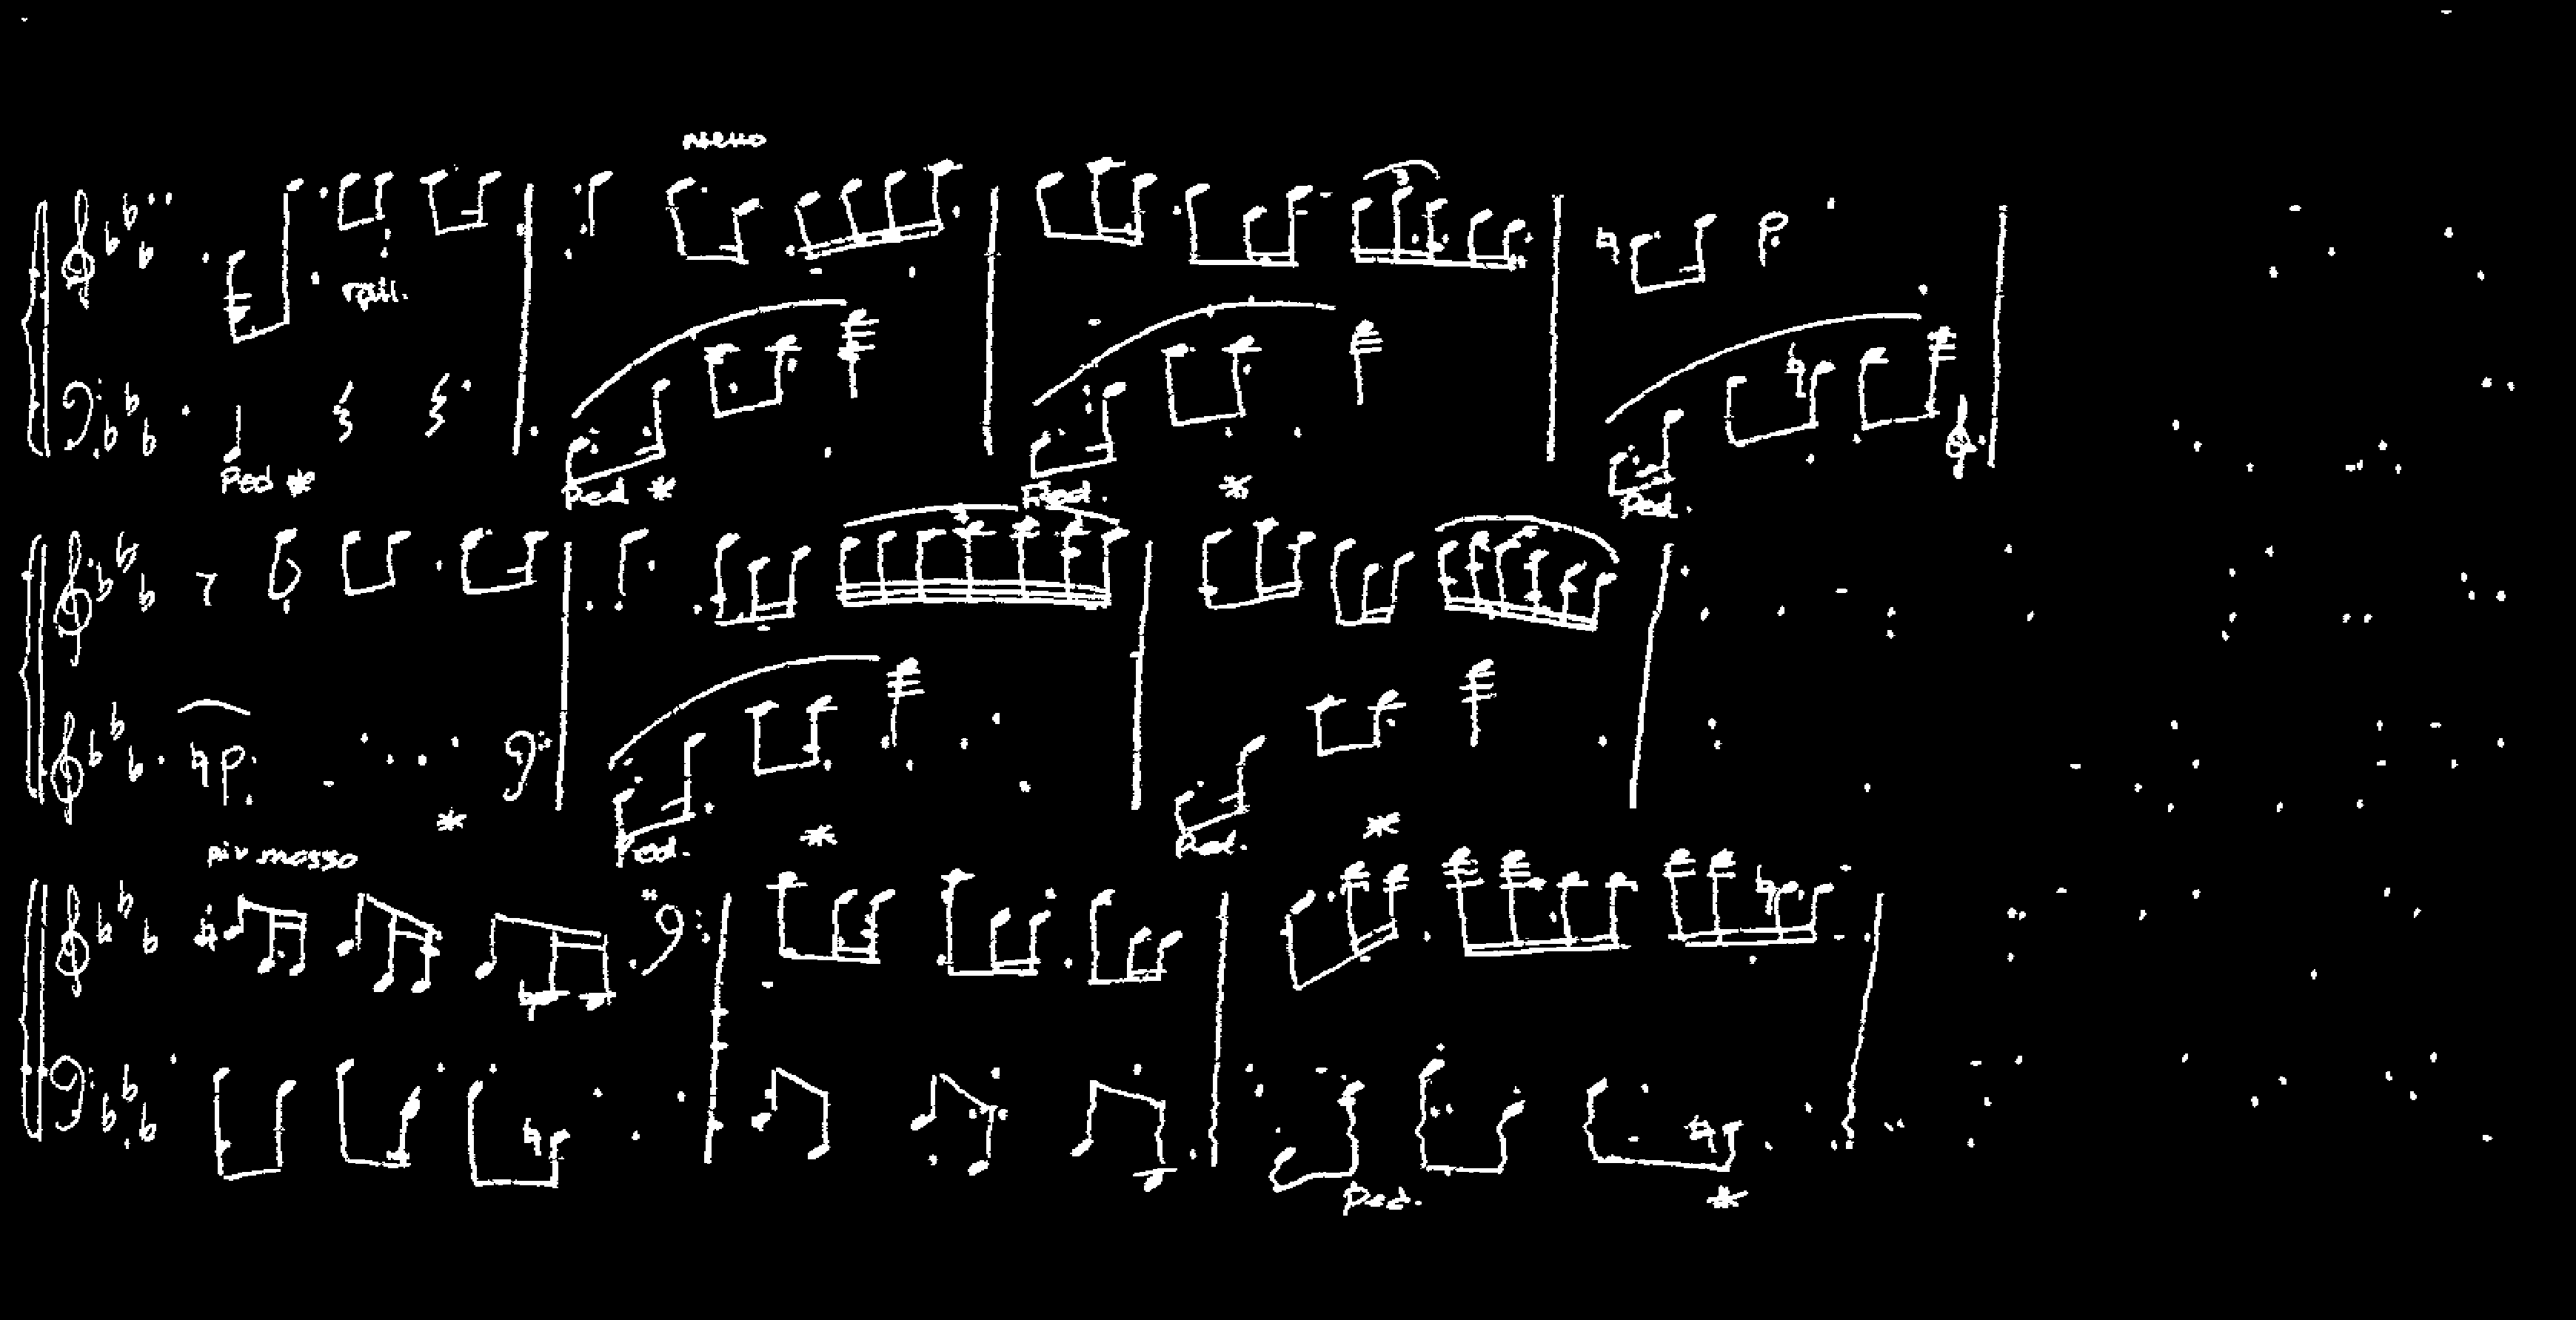 meno
rall.
3
Ped * Ped * Ped. * Ped.
3
* Ped. * Ped. *
più mosso
Ped. *